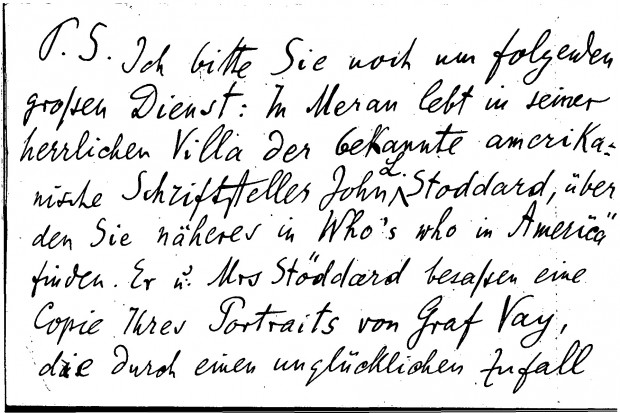 P. S. Ich bitte Sie noch um folgenden
großen Dienst: In Meran lebt in seiner
herrlichen Villa der bekannte amerika-
nische Schriftsteller John L. Stoddard, über
den Sie näheres in Who's who in America"
finden. Er u. Mrs Stoddard besaßen eine
Copie Ihres Portraits von Graf Vay,
die durch einen unglücklichen Zufall